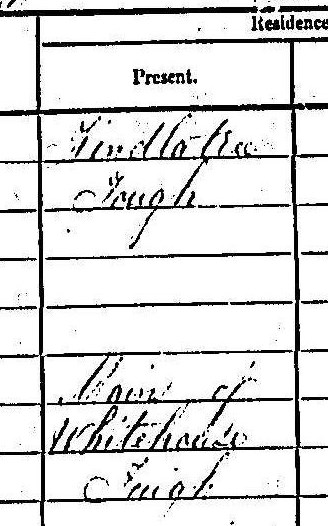 Residence
Present.
Tough
Mains of
Whitehouse
Tough